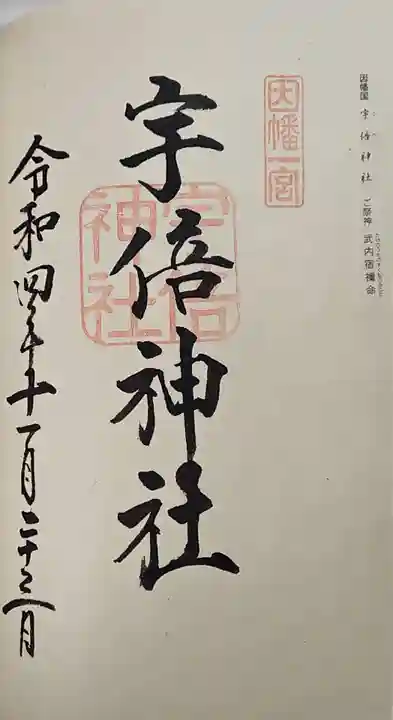 因幡国 宇倍神社 ご祭神 武内宿禰命
因幡一宮
宇倍神社
宇倍
神社
令和四年十一月二十三日